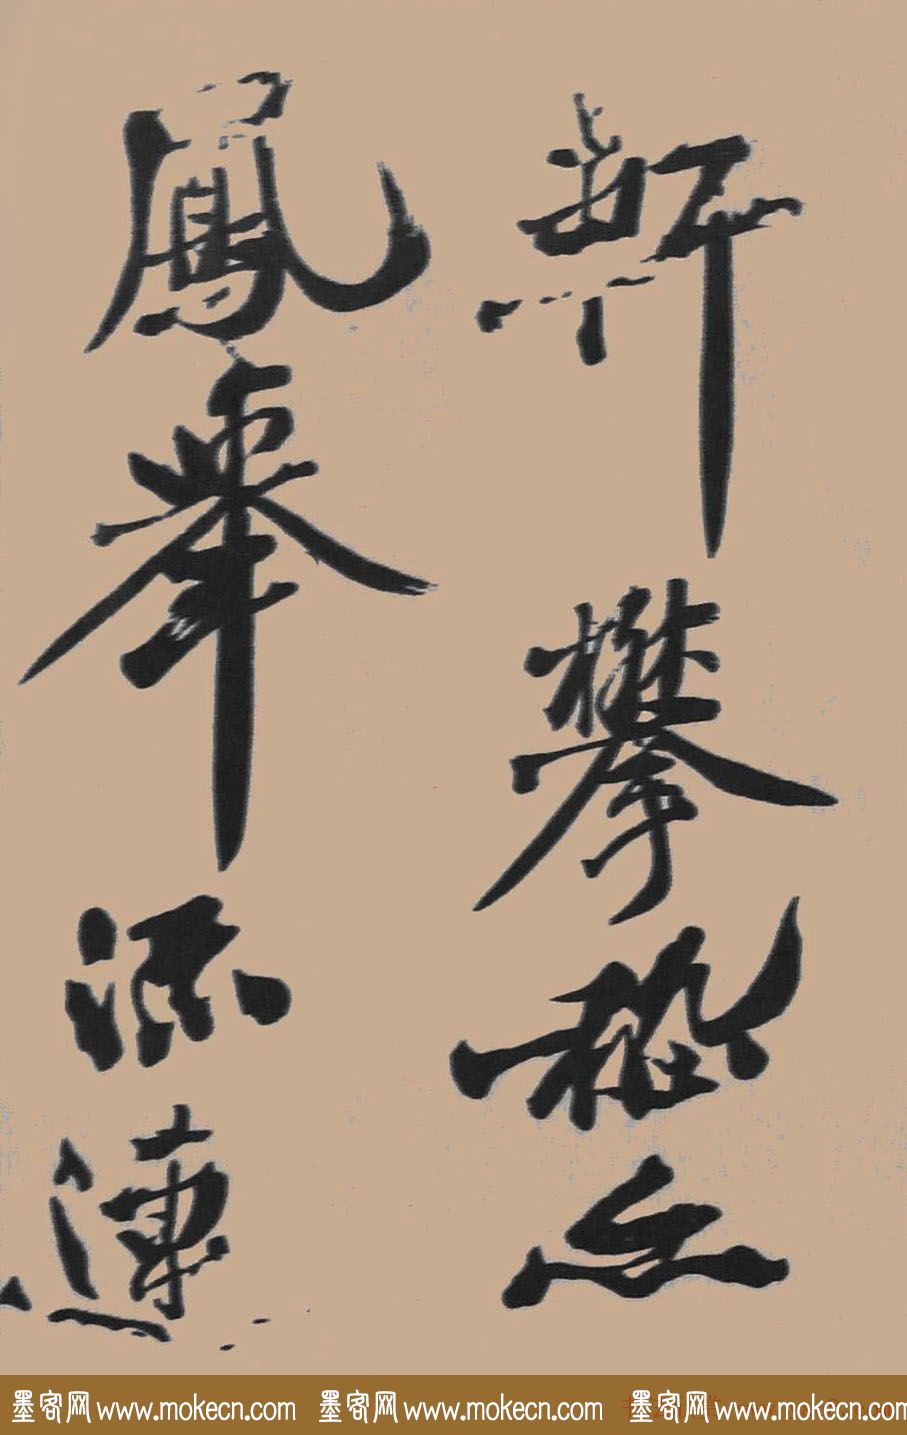 軒攀之
鳳舉流連
墨客网 www.mokecn.com 墨客网 www.mokecn.com 墨客网 www.mokecn.com